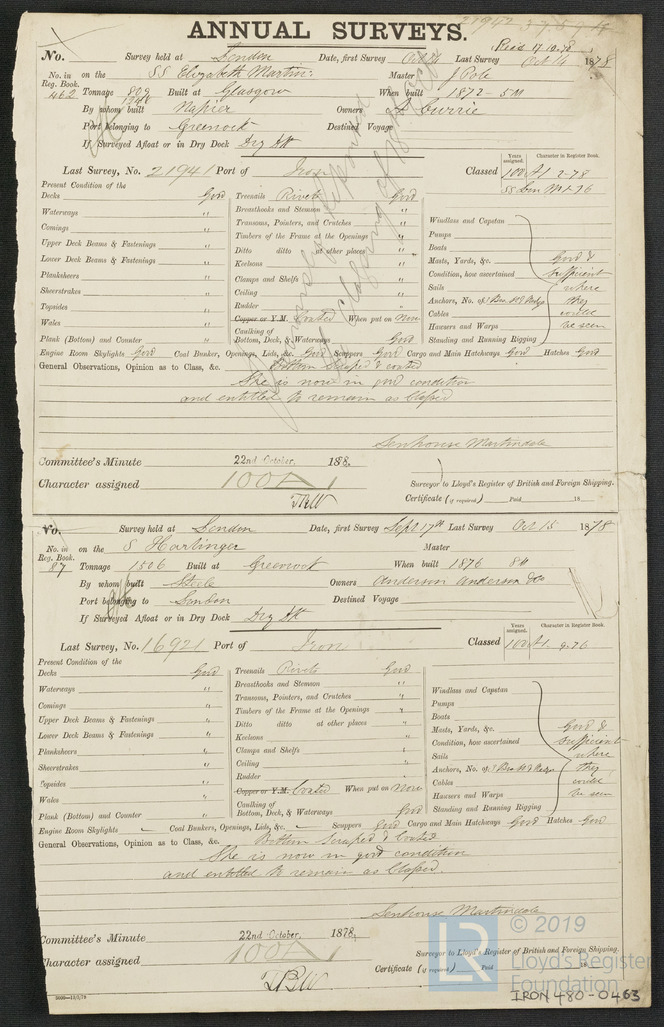 ANNUAL SURVEYS.
Recd 17.10.78
No. Survey held at London Date, first Survey Oct 14 Last Survey Oct 14 1878
No. in Reg. Book. on the SS Elizabeth Martin Master J Pole
462 Tonnage 809 Built at Glasgow When built 1872 - 5M
1246
By whom built Napier Owners A Currie
Port belonging to Greenock Destined Voyage
If Surveyed Afloat or in Dry Dock Dry Dk
Last Survey, No. 21941 Port of Iron Classed
Years assigned. Character in Register Book.
100 A1 2-78
SS Lon No1-76
Present Condition of the
Decks Good
Waterways "
Comings "
Upper Deck Beams & Fastenings "
Lower Deck Beams & Fastenings "
Planksheers "
Sheerstrakes "
Topsides "
Wales "
Plank (Bottom) and Counter "
Treenails Rivets Good
Breasthooks and Stemson "
Transoms, Pointers, and Crutches "
Timbers of the Frame at the Openings "
Ditto ditto at other places "
Keelsons "
Clamps and Shelfs "
Ceiling "
Rudder "
Copper or Y.M. Coated When put on Now
Caulking of Bottom, Deck, & Waterways Good
Windlass and Capstan
Pumps
Boats
Masts, Yards, &c.
Condition, how ascertained
Sails
Anchors, No. of
Cables
Hawsers and Warps
Standing and Running Rigging
Good &
sufficient
where
they
could
be seen
Engine Room Skylights Good Coal Bunker, Openings, Lids, &c. Good Scuppers Good Cargo and Main Hatchways Good Hatches Good
General Observations, Opinion as to Class, &c. Bottom Scraped & coated
She is now in good condition
and entitled to remain as Classed
Senhouse Martindale
Committee's Minute 22nd October, 1878.
Character assigned 100A1
Surveyor to Lloyd's Register of British and Foreign Shipping.
Certificate (if required) Paid 18
No. Survey held at London Date, first Survey Sept 17th Last Survey Oct 15 1878
No. in Reg. Book. on the S Harbinger Master
87 Tonnage 1506 Built at Greenock When built 1876 8M
By whom built Steele Owners Anderson Anderson & Co
Port belonging to London Destined Voyage
If Surveyed Afloat or in Dry Dock Dry Dk
Last Survey, No. 16921 Port of Iron Classed
Years assigned. Character in Register Book.
100 A1 9-76
Present Condition of the
Decks Good
Waterways "
Comings "
Upper Deck Beams & Fastenings "
Lower Deck Beams & Fastenings "
Planksheers "
Sheerstrakes "
Topsides "
Wales "
Plank (Bottom) and Counter "
Treenails Rivets Good
Breasthooks and Stemson "
Transoms, Pointers, and Crutches "
Timbers of the Frame at the Openings "
Ditto ditto at other places "
Keelsons "
Clamps and Shelfs "
Ceiling "
Rudder "
Copper or Y.M. Coated When put on Now
Caulking of Bottom, Deck, & Waterways Good
Windlass and Capstan
Pumps
Boats
Masts, Yards, &c.
Condition, how ascertained
Sails
Anchors, No. of
Cables
Hawsers and Warps
Standing and Running Rigging
Good &
sufficient
where
they
could
be seen
Engine Room Skylights - Coal Bunkers, Openings, Lids, &c. - Scuppers Good Cargo and Main Hatchways Good Hatches Good
General Observations, Opinion as to Class, &c. Bottom Scraped & Coated
She is now in good condition
and entitled to remain as Classed.
Senhouse Martindale
Committee's Minute 22nd October, 1878,
Character assigned 100A1
Surveyor to Lloyd's Register of British and Foreign Shipping.
Certificate (if required) Paid 18
LR © 2019
Lloyd's Register
Foundation
IRON 480-0463